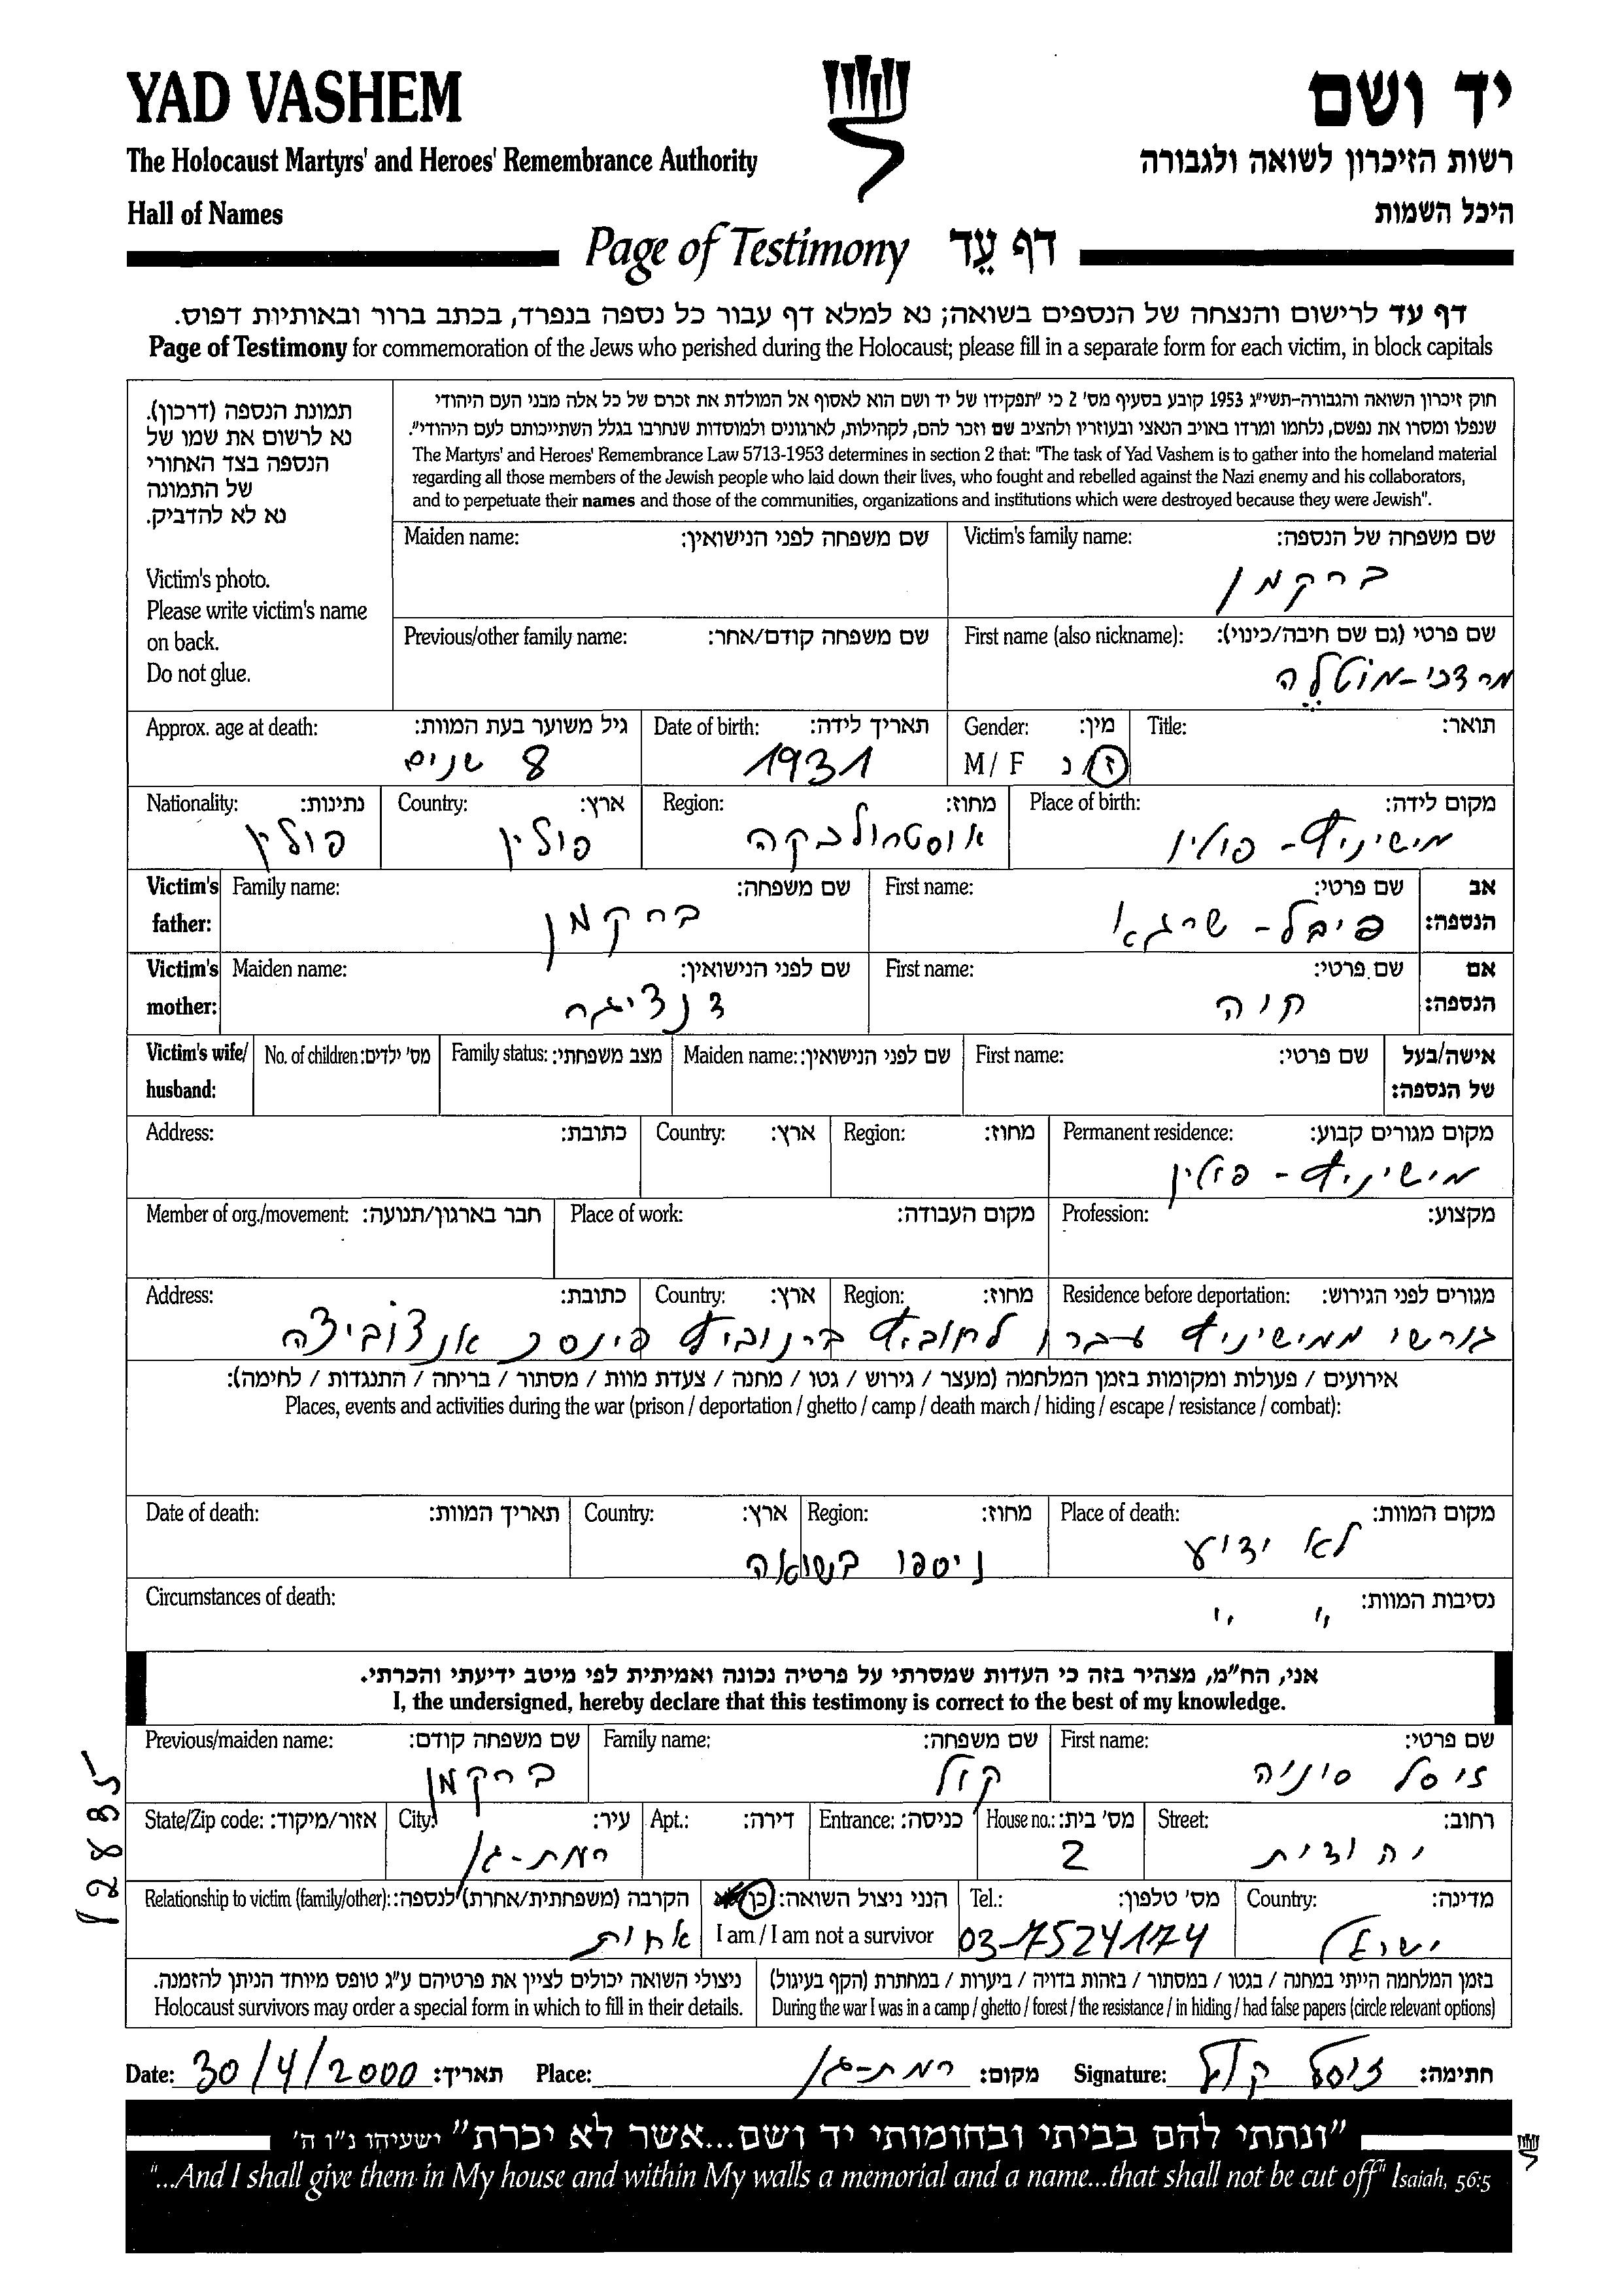 YAD VASHEM
יד ושם
The Holocaust Martyrs' and Heroes' Remembrance Authority
רשות הזיכרון לשואה ולגבורה
Hall of Names
היכל השמות
Page of Testimony דף עֵד
דף עד לרישום והנצחה של הנספים בשואה; נא למלא דף עבור כל נספה בנפרד, בכתב ברור ובאותיות דפוס.
Page of Testimony for commemoration of the Jews who perished during the Holocaust; please fill in a separate form for each victim, in block capitals
תמונת הנספה (דרכון).
נא לרשום את שמו של
הנספה בצד האחורי
של התמונה
נא לא להדביק.
Victim's photo.
Please write victim's name
on back.
Do not glue.
חוק זיכרון השואה והגבורה-תשי"ג 1953 קובע בסעיף מס' 2 כי "תפקידו של יד ושם הוא לאסוף אל המולדת את זכרם של כל אלה מבני העם היהודי
שנפלו ומסרו את נפשם, נלחמו ומרדו באויב הנאצי ובעוזריו ולהציב שם וזכר להם, לקהילות, לארגונים ולמוסדות שנחרבו בגלל השתייכותם לעם היהודי".
The Martyrs' and Heroes' Remembrance Law 5713-1953 determines in section 2 that: "The task of Yad Vashem is to gather into the homeland material
regarding all those members of the Jewish people who laid down their lives, who fought and rebelled against the Nazi enemy and his collaborators,
and to perpetuate their names and those of the communities, organizations and institutions which were destroyed because they were Jewish".
Maiden name: שם משפחה לפני הנישואין:
Victim's family name: שם משפחה של הנספה:
ברקמן
Previous/other family name: שם משפחה קודם/אחר:
First name (also nickname): שם פרטי (גם שם חיבה/כינוי):
מרדכי-מוֹטלֶה
Approx. age at death: גיל משוער בעת המוות:
8 שנים
Date of birth: תאריך לידה:
1931
Gender: מין:
M / F ז/נ
Title: תואר:
Nationality: נתינות:
פולין
Country: ארץ:
פולין
Region: מחוז:
אוסטרולנקה
Place of birth: מקום לידה:
מישיניץ - פולין
Victim's father: Family name: שם משפחה:
ברקמן
First name: שם פרטי:
פייבל - שרגא
אב הנספה:
Victim's mother: Maiden name: שם לפני הנישואין:
דנציגר
First name: שם פרטי:
קוה
אם הנספה:
Victim's wife/ husband: No. of children: מס' ילדים: Family status: מצב משפחתי: Maiden name: שם לפני הנישואין: First name: שם פרטי: אישה/בעל של הנספה:
Address: כתובת: Country: ארץ: Region: מחוז: Permanent residence: מקום מגורים קבוע:
מישיניץ - פולין
Member of org./movement: חבר בארגון/תנועה: Place of work: מקום העבודה: Profession: מקצוע:
Address: כתובת: Country: ארץ: Region: מחוז: Residence before deportation: מגורים לפני הגירוש:
גורשו ממישיניץ עברו פינסק
אירועים / פעולות ומקומות בזמן המלחמה (מעצר / גירוש / גטו / מחנה / צעדת מוות / מסתור / בריחה / התנגדות / לחימה):
Places, events and activities during the war (prison / deportation / ghetto / camp / death march / hiding / escape / resistance / combat):
Date of death: תאריך המוות: Country: ארץ: Region: מחוז: Place of death: מקום המוות:
לא ידוע
ניספו בשואה
Circumstances of death: נסיבות המוות:
" "
אני, הח"מ, מצהיר בזה כי העדות שמסרתי על פרטיה נכונה ואמיתית לפי מיטב ידיעתי והכרתי.
I, the undersigned, hereby declare that this testimony is correct to the best of my knowledge.
Previous/maiden name: שם משפחה קודם:
ברקמן
Family name: שם משפחה:
קול
First name: שם פרטי:
זיסל סוניה
State/Zip code: אזור/מיקוד: City: עיר:
רמת-גן
Apt.: דירה: Entrance: כניסה: House no.: מס' בית:
2
Street: רחוב:
יהודית
Relationship to victim (family/other): הקרבה (משפחתית/אחרת) לנספה:
אחות
הנני ניצול השואה: כן
I am / I am not a survivor
Tel.: מס' טלפון:
03-7524174
Country: מדינה:
ישראל
ניצולי השואה יכולים לציין את פרטיהם ע"ג טופס מיוחד הניתן להזמנה.
Holocaust survivors may order a special form in which to fill in their details.
בזמן המלחמה הייתי במחנה / בגטו / במסתור / בזהות בדויה / ביערות / במחתרת (הקף בעיגול)
During the war I was in a camp / ghetto / forest / the resistance / in hiding / had false papers (circle relevant options)
Date: 30/4/2000 תאריך: Place: רמת-גן מקום: Signature: זיסל קול חתימה:
"ונתתי להם בביתי ובחומותי יד ושם...אשר לא יכרת" ישעיהו נ"ו ה'
"...And I shall give them in My house and within My walls a memorial and a name...that shall not be cut off" Isaiah, 56:5